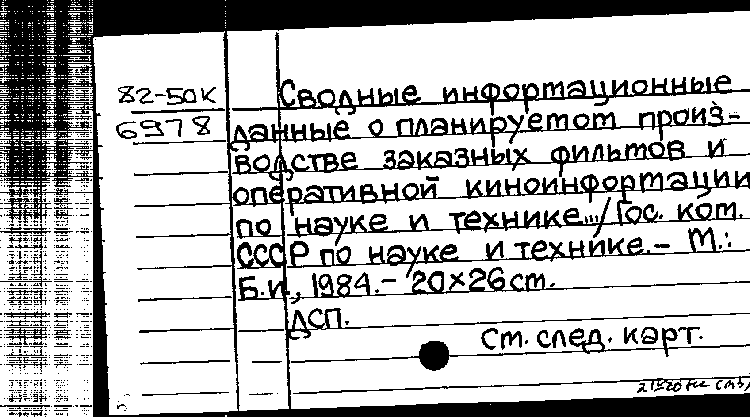 82-50К
6978
Сводные информационные
данные о планируемом произ-
водстве заказных фильмов и
оперативной киноинформации
по науке и технике.../Гос. ком.
СССР по науке и технике.- М.:
Б.и., 1984.- 20×26 см.
ДСП.
См. след. карт.